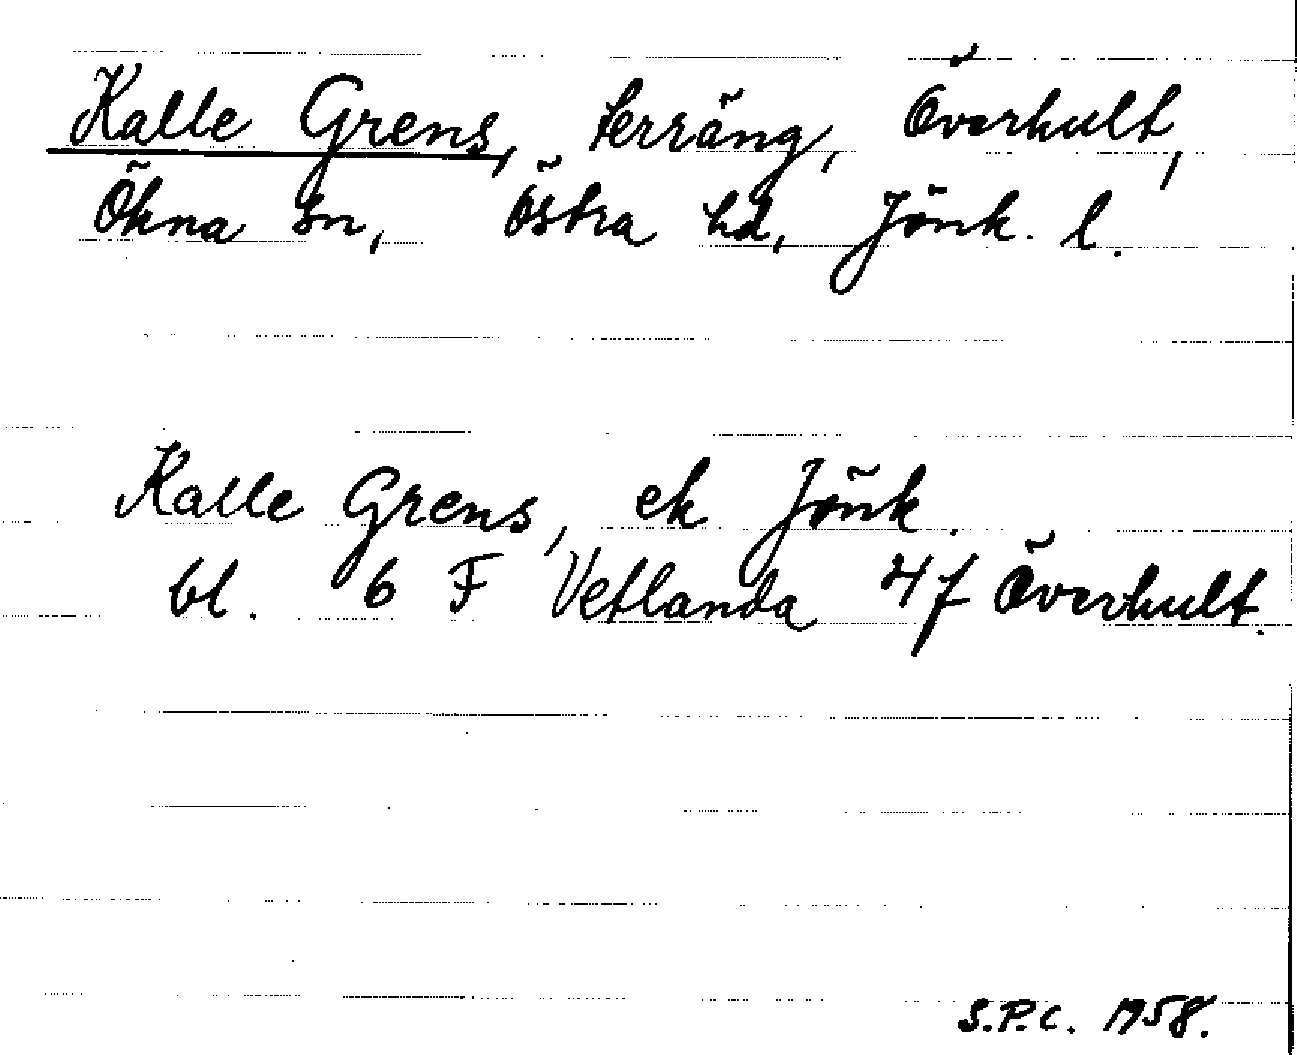 Kalle Grens, terräng, Överhult,
Ökna sn, Östra hd, Jönk. l.
Kalle Grens, ek Jönk.
bl. 6 F Vetlanda 4f Överhult.
S.P.C. 1958.